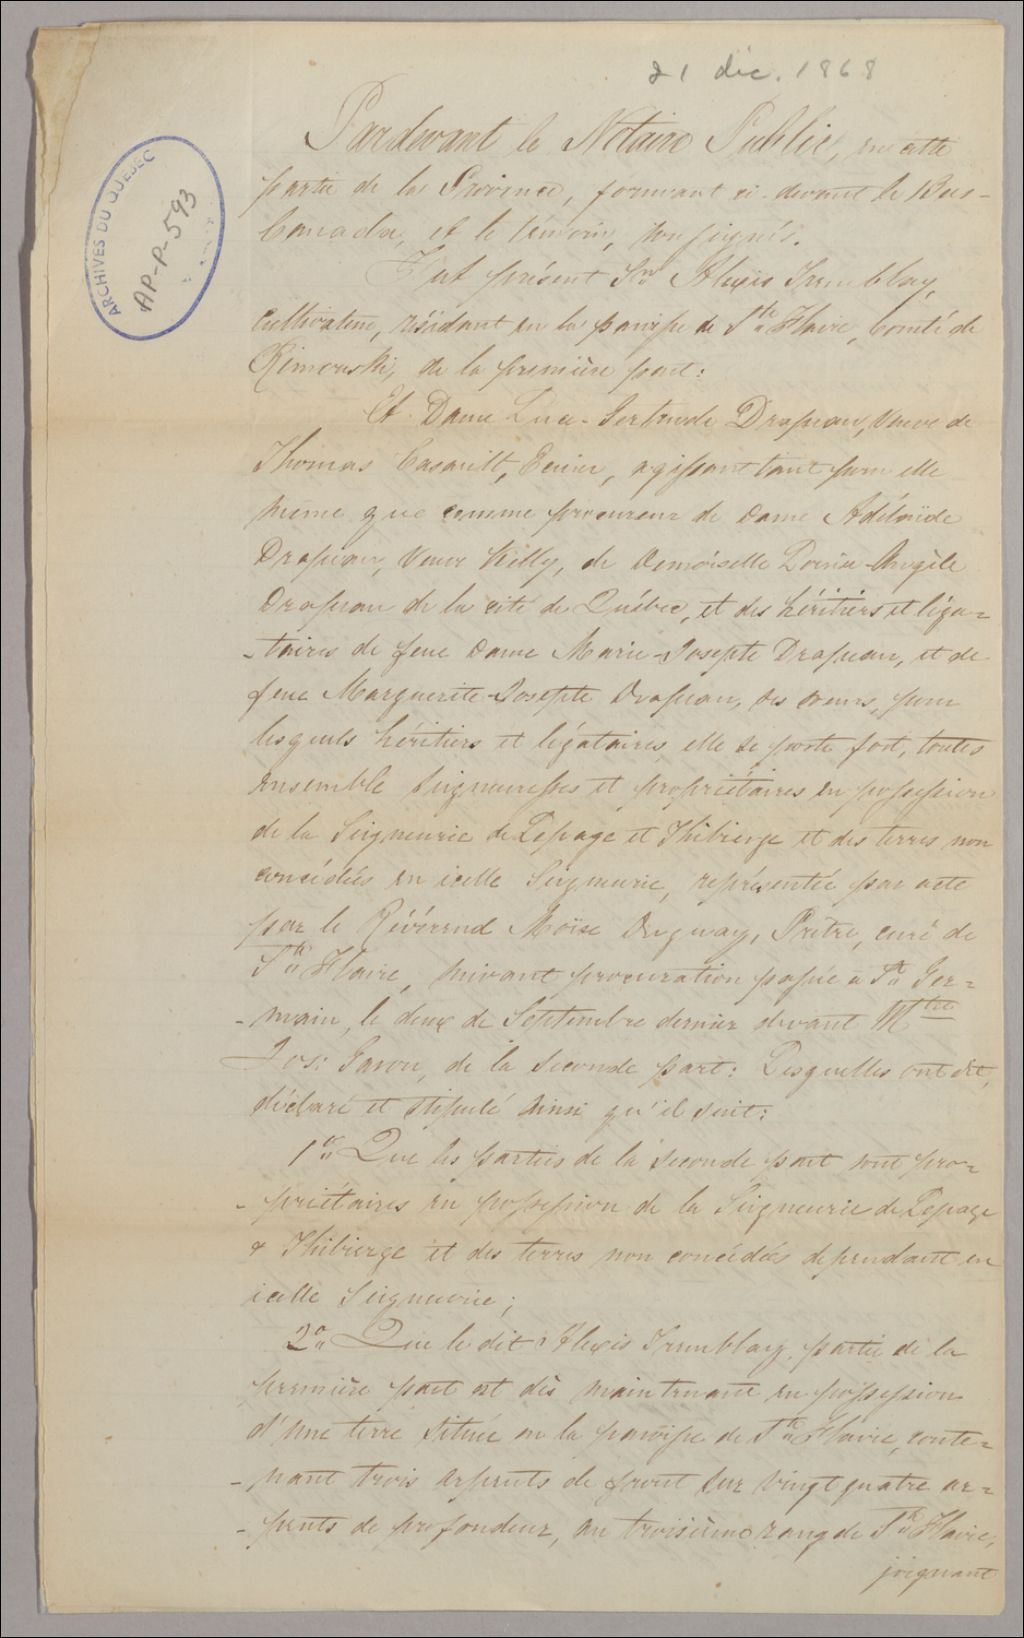 21 déc. 1868
ARCHIVES DU QUÉBEC
AP-P-593
Pardevant le Notaire Public, en cette
partie de la Province, formant ci-devant le Bas-
Canada, et le témoin, soussignés.
Fut présent Sr Alexis Tremblay,
Cultivateur, résidant en la paroisse de Ste Flavie, Comté de
Rimouski, de la première part:
Et Dame Luce-Gertrude Drapeau, Veuve de
Thomas Casault, Ecuier, agissant tant pour elle
même que comme procureur de Dame Adélaïde
Drapeau, Veuve Kelly, de Demoiselle Louise-Angèle
Drapeau de la cité de Québec, et des héritiers et léga=
-taires de feue Dame Marie-Josepte Drapeau, et de
feue Marguerite-Josepte Drapeau, ses sœurs, pour
lesquels héritiers et légataires, elle se porte fort, toutes
ensemble Seigneuresses et propriétaires en possession
de la Seigneurie de Lepage et Thibierge et des terres non
concédées en icelle Seigneurie, représentée par acte
par le Révérend Moïse Duguay, Prêtre, curé de
Ste Flavie, suivant procuration passée à St Ger=
-main, le deux de Septembre dernier devant Mtre
Jos: Garon, de la Seconde part: Lesquelles ont dit,
déclaré et stipulé ainsi qu'il suit:
1o Que les parties de la Seconde part sont pro=
-priétaires en possession de la Seigneurie de Lepage
& Thibierge et des terres non concédées dependant en
icelle Seigneurie;
2o Que le dit Alexis Tremblay, partie de la
première part est dès maintenant en possession
d'une terre située en la paroisse de Ste Flavie, conte=
-nant trois arpents de front sur vingt quatre ar=
-pents de profondeur, au troisième rang de Ste Flavie,
joignant